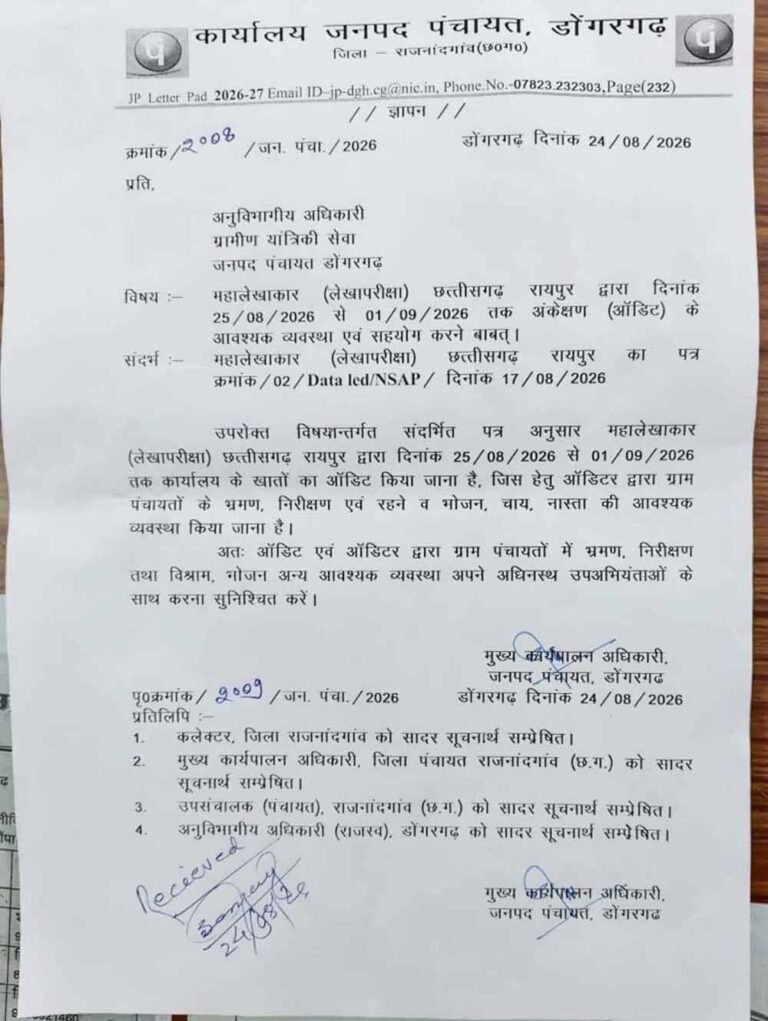 कार्यालय जनपद पंचायत, डोंगरगढ़
जिला – राजनांदगांव(छ0ग0)
JP Letter Pad 2026-27 Email ID–jp-dgh.cg@nic.in, Phone.No.-07823.232303,Page(232)
// ज्ञापन //
क्रमांक/2008 /जन. पंचा./2026 डोंगरगढ़ दिनांक 24/08/2026
प्रति,
अनुविभागीय अधिकारी
ग्रामीण यांत्रिकी सेवा
जनपद पंचायत डोंगरगढ़
विषय :– महालेखाकार (लेखापरीक्षा) छत्तीसगढ़ रायपुर द्वारा दिनांक
25/08/2026 से 01/09/2026 तक अंकेक्षण (ऑडिट) के
आवश्यक व्यवस्था एवं सहयोग करने बाबत्।
संदर्भ :– महालेखाकार (लेखापरीक्षा) छत्तीसगढ़ रायपुर का पत्र
क्रमांक/02/Data led/NSAP/ दिनांक 17/08/2026
उपरोक्त विषयान्तर्गत संदर्भित पत्र अनुसार महालेखाकार
(लेखापरीक्षा) छत्तीसगढ़ रायपुर द्वारा दिनांक 25/08/2026 से 01/09/2026
तक कार्यालय के खातों का ऑडिट किया जाना है, जिस हेतु ऑडिटर द्वारा ग्राम
पंचायतों के भ्रमण, निरीक्षण एवं रहने व भोजन, चाय, नास्ता की आवश्यक
व्यवस्था किया जाना है।
अतः ऑडिट एवं ऑडिटर द्वारा ग्राम पंचायतों में भ्रमण, निरीक्षण
तथा विश्राम, भोजन अन्य आवश्यक व्यवस्था अपने अधिनस्थ उपअभियंताओं के
साथ करना सुनिश्चित करें।
मुख्य कार्यपालन अधिकारी,
जनपद पंचायत, डोंगरगढ
पृ0क्रमांक/ 2009 /जन. पंचा./2026 डोंगरगढ़ दिनांक 24/08/2026
प्रतिलिपि :–
1. कलेक्टर, जिला राजनांदगांव को सादर सूचनार्थ सम्प्रेषित।
2. मुख्य कार्यपालन अधिकारी, जिला पंचायत राजनांदगांव (छ.ग.) को सादर
सूचनार्थ सम्प्रेषित।
3. उपसंचालक (पंचायत), राजनांदगांव (छ.ग.) को सादर सूचनार्थ सम्प्रेषित।
4. अनुविभागीय अधिकारी (राजस्व), डोंगरगढ़ को सादर सूचनार्थ सम्प्रेषित।
Recieved
24/08/26
मुख्य कार्यपालन अधिकारी,
जनपद पंचायत, डोंगरगढ